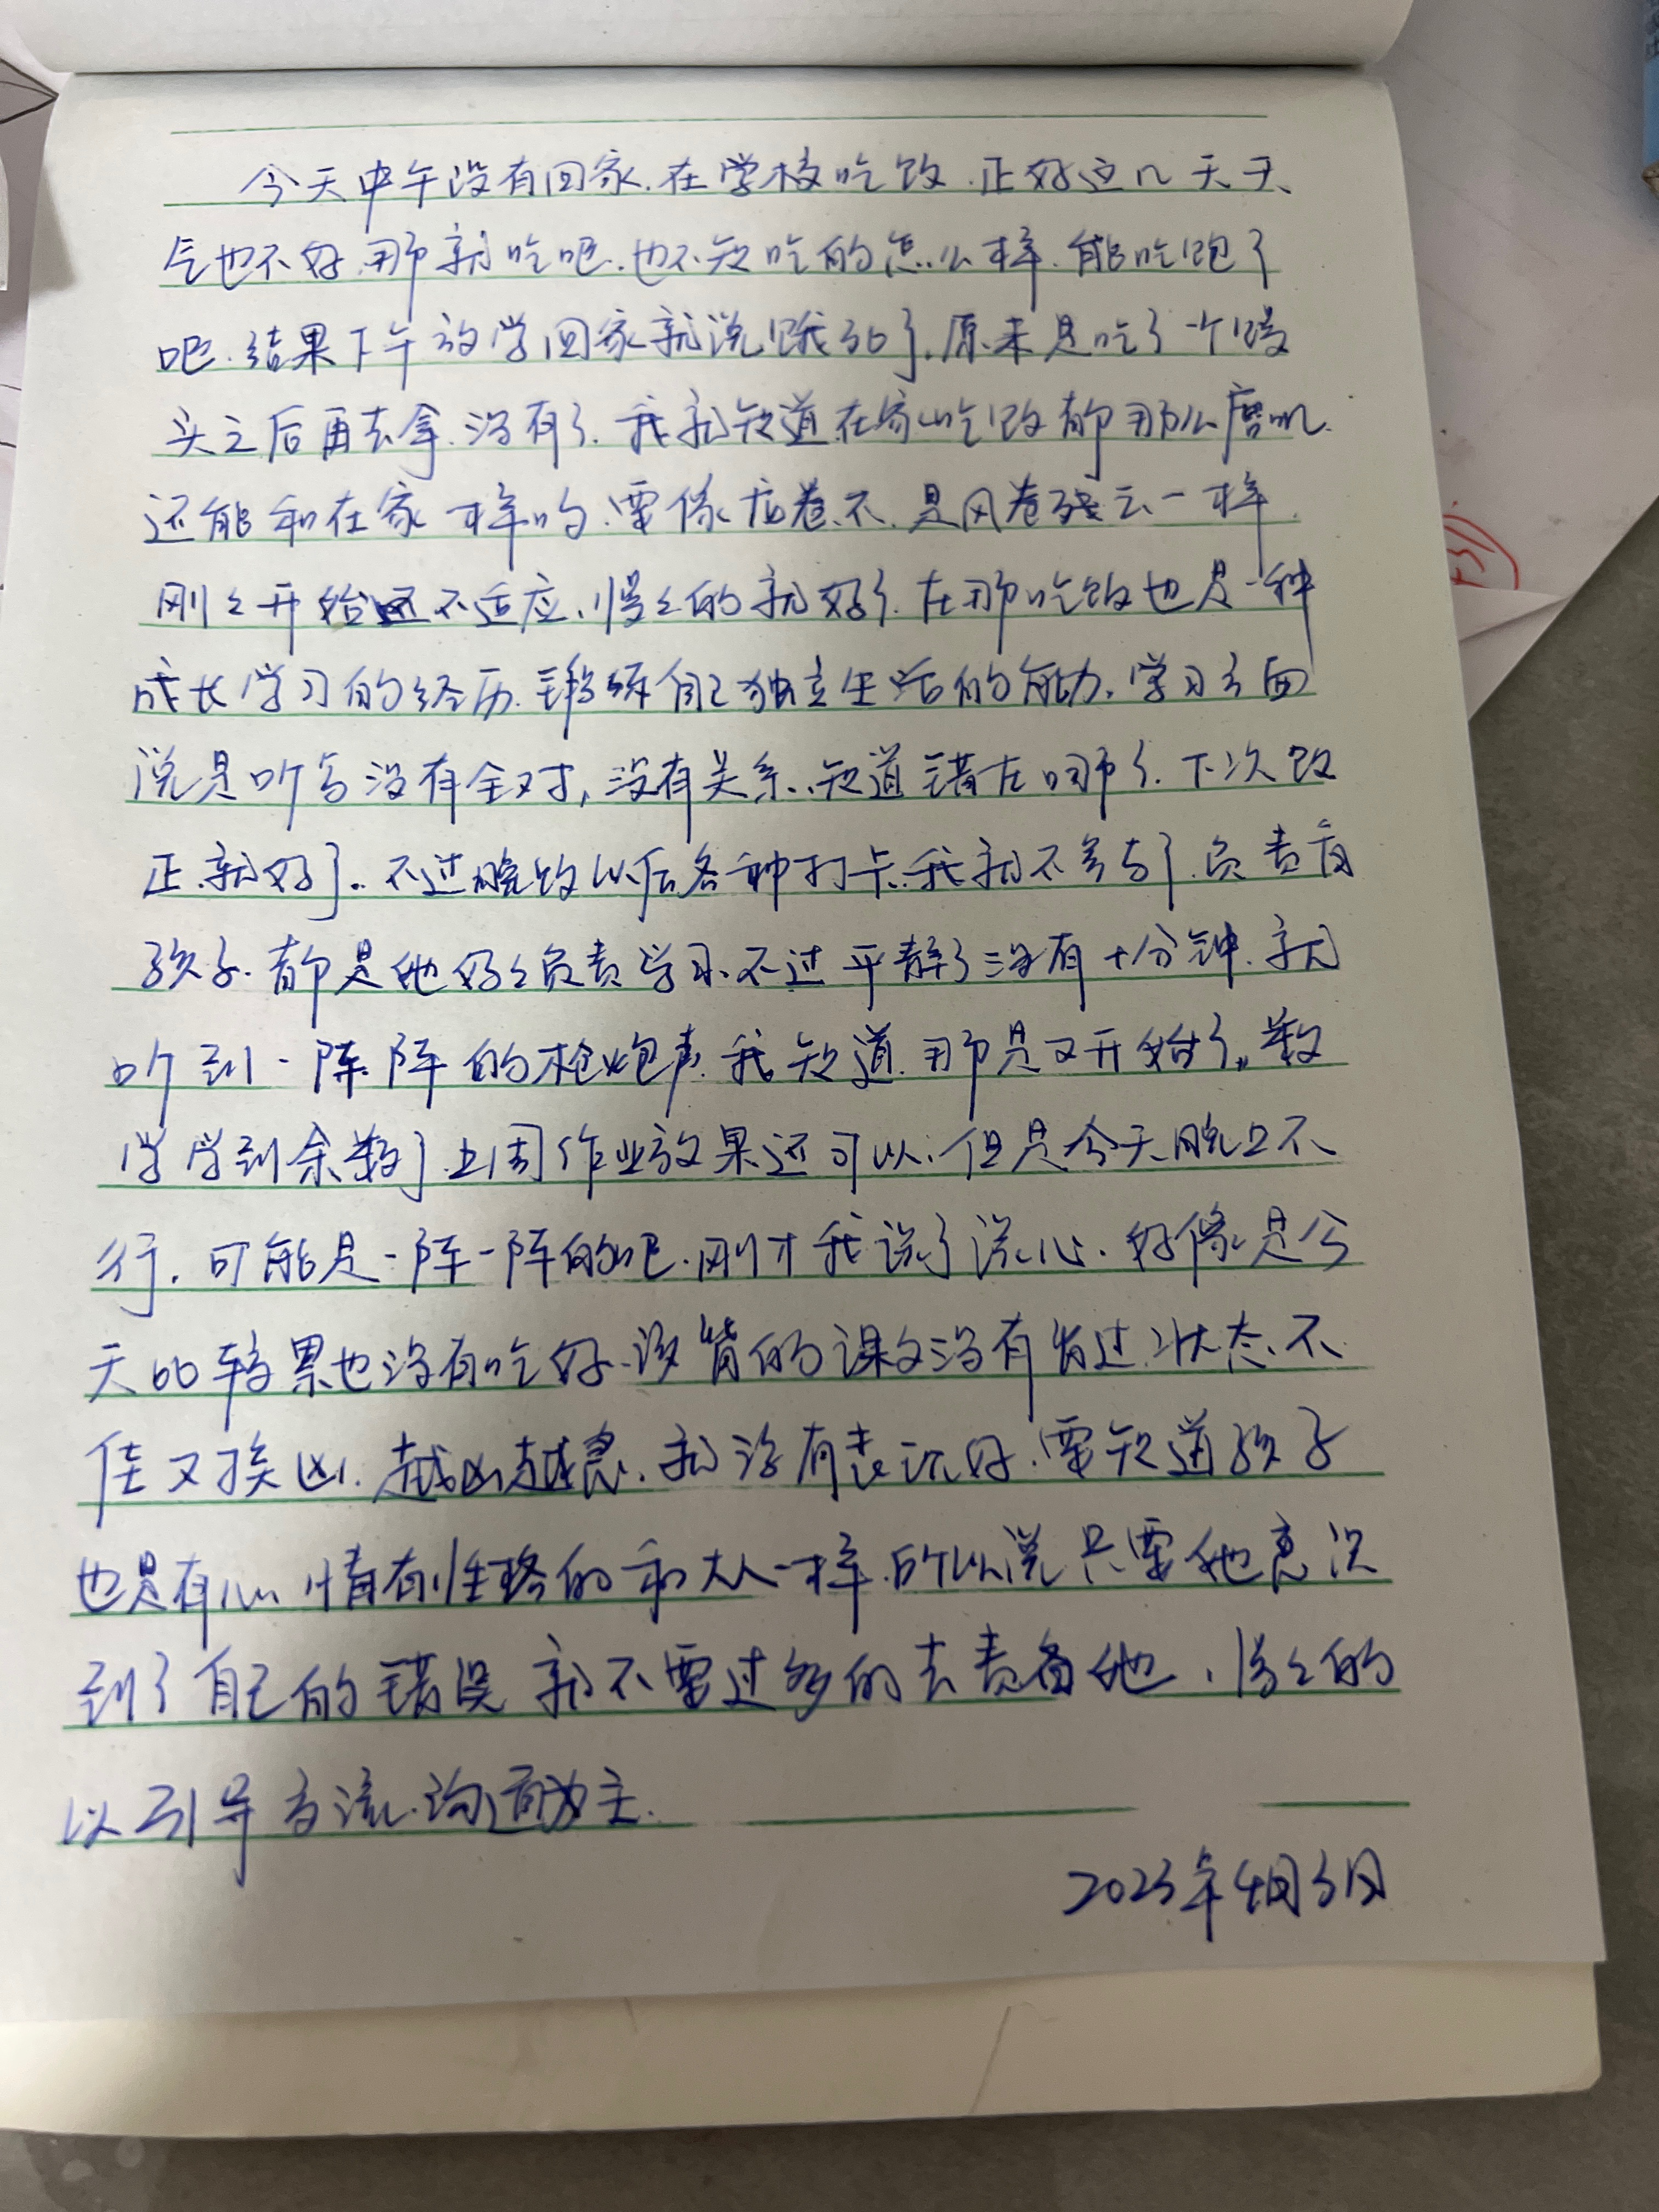 今天中午没有回家.在学校吃饭.正好这几天天
气也不好.那就吃吧.也不知吃的怎么样.能吃饱了
吧.结果下午放学回家就说饿的了.原来是吃了一个馒
头之后再去拿.没有了.我就知道.在家吃饭都那么磨叽.
还能和在家一样吗.要像龙卷.不.是风卷残云一样.
刚々开始还不适应.慢々的就好了.在那吃饭也是一种
成长学习的经历.锻练自己独立生活的能力.学习方面
说是听写没有全对,没有关系.知道错在哪了.下次改
正.就好了.不过晚饭以后各种打卡.我就不参与了.负责
孩子.都是她好々负责学习.不过平静了没有十分钟.就
听到一阵阵的枪炮声.我知道.那是又开始了.数
学学到余数了.上周作业效果还可以.但是今天晚上不
行.可能是一阵一阵的吧.刚才我说了说心.好像是今
天比较累也没有吃好.该背的课文没有背过.状态不
佳又挨凶.越凶越急.就没有表现好.要知道孩子
也是有心情有性格的和大人一样.所以说只要他意识
到了自己的错误就不需过多的去责备他.慢々的
以引导交流.沟通为主.
2023年4月3日